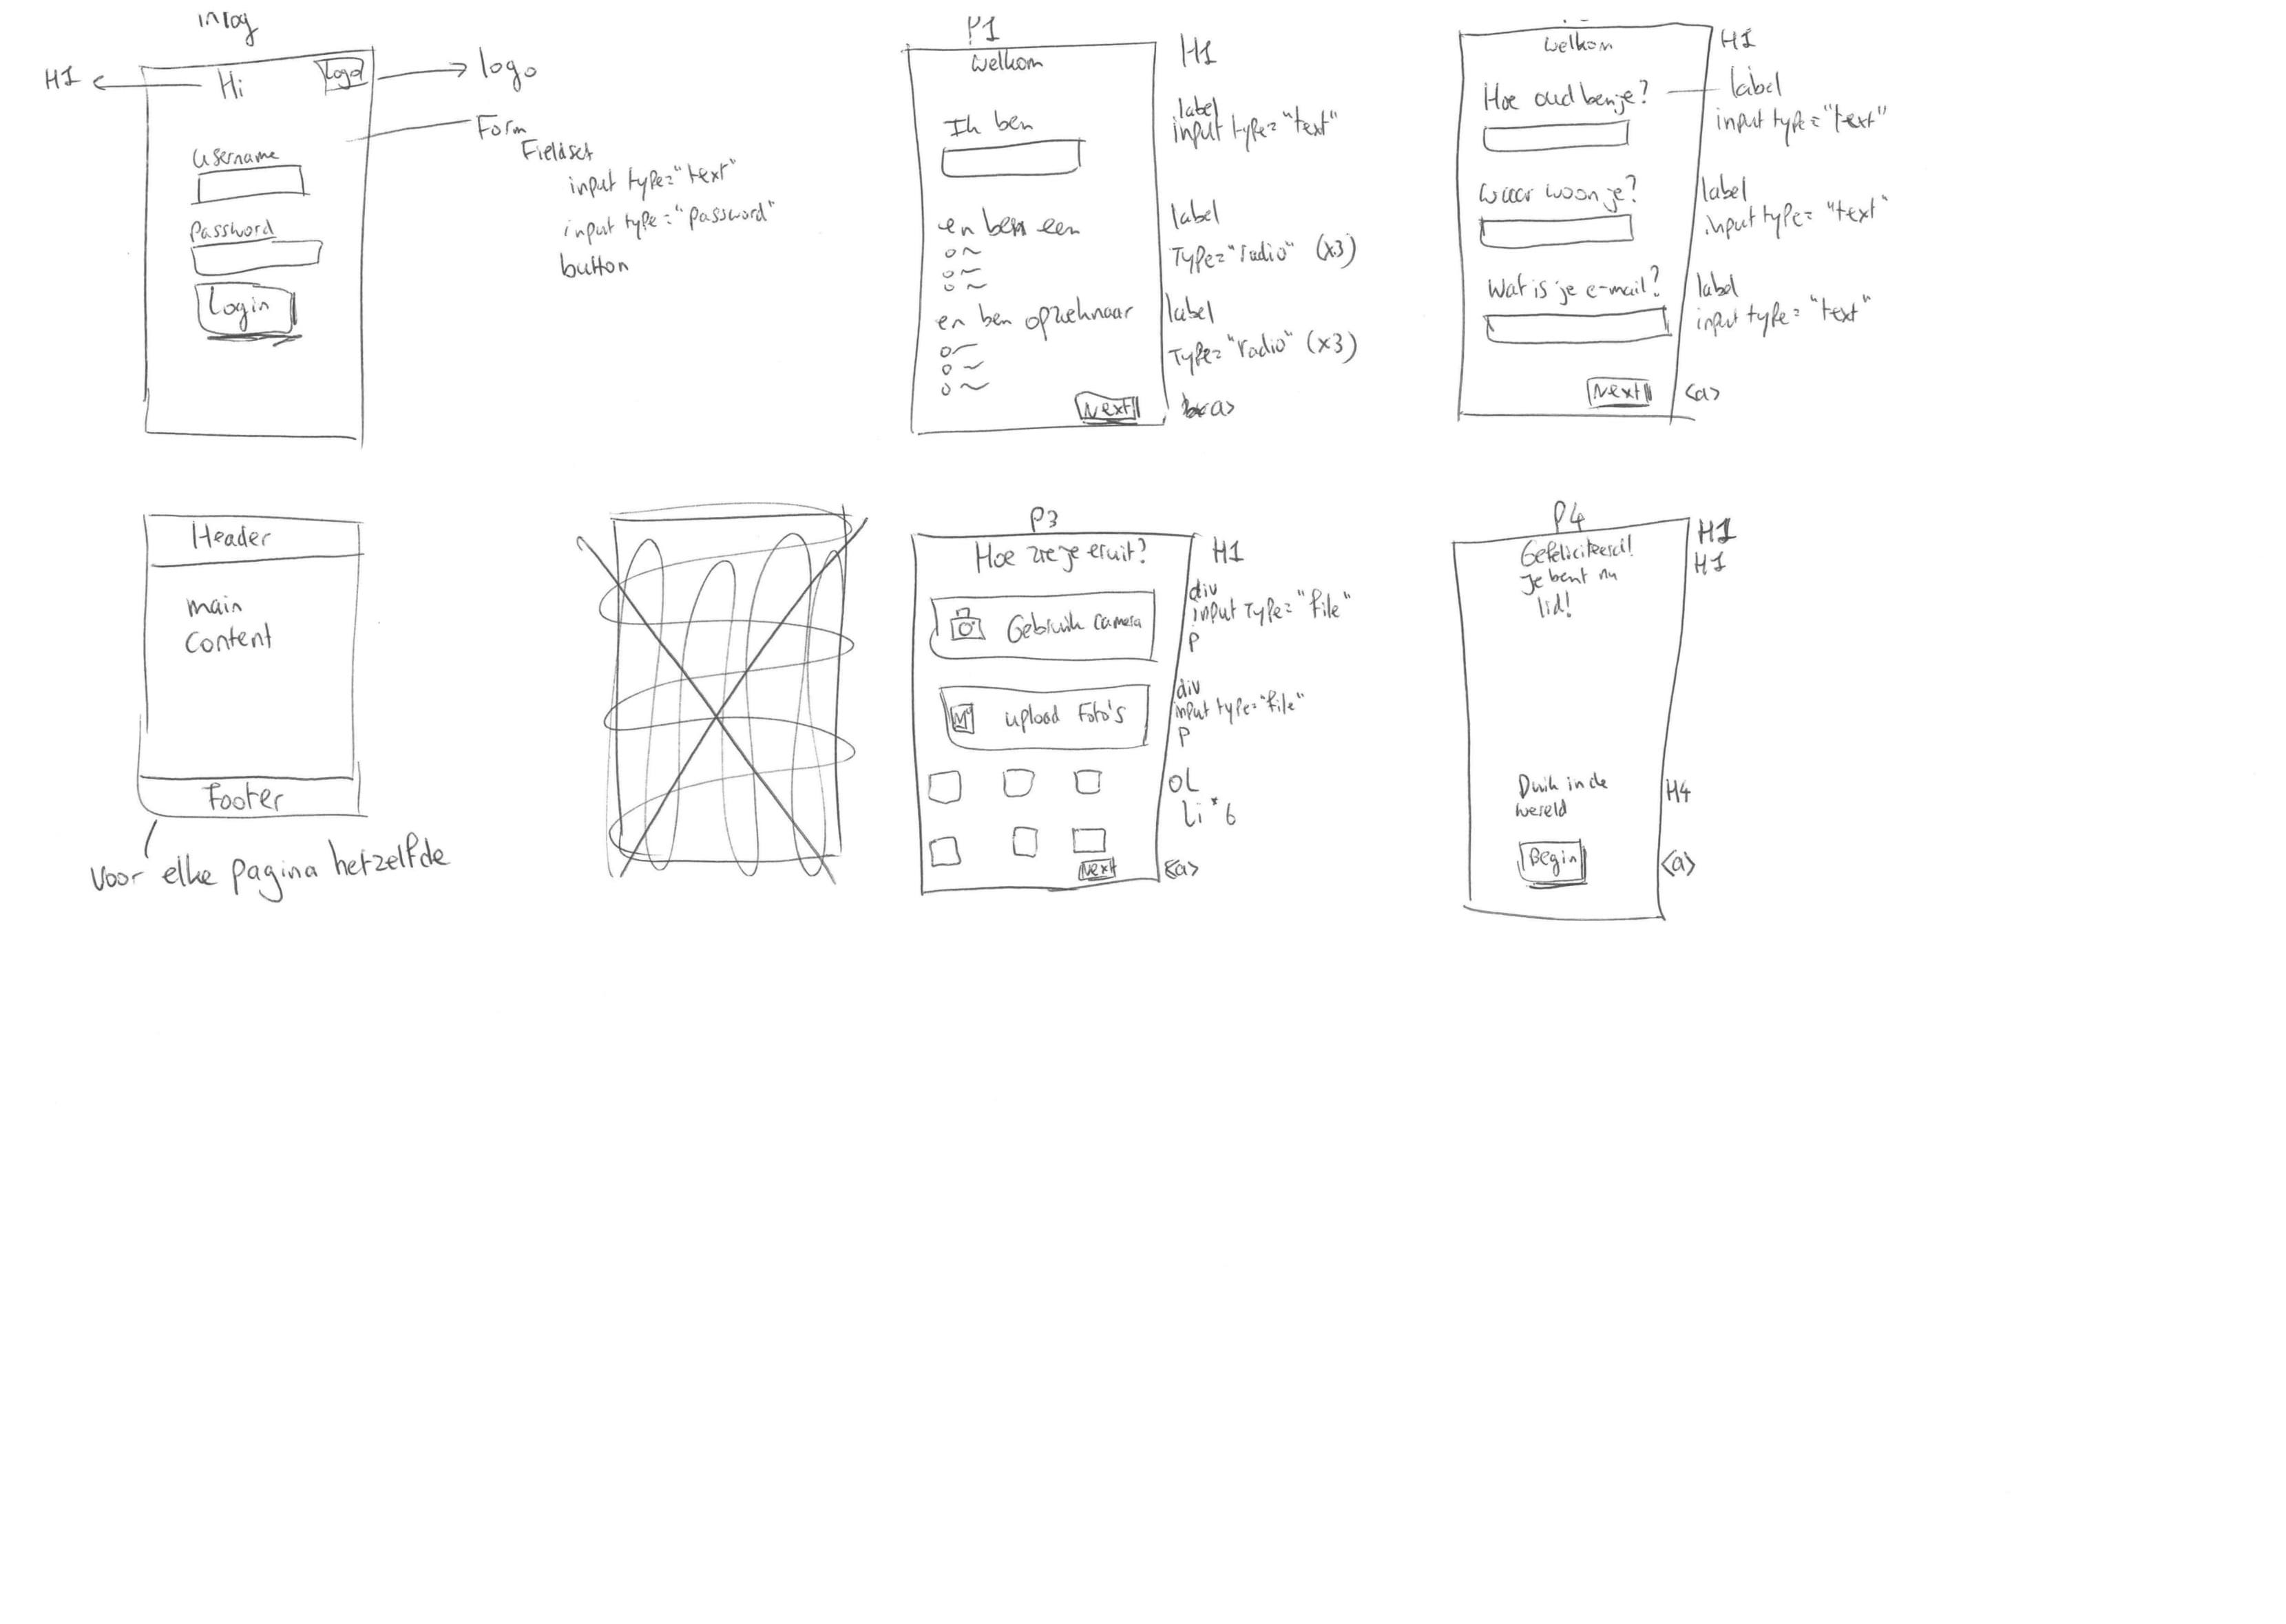 inlog
H1
Hi
Logo
logo
Form
Fieldset
input type="text"
input type="password"
button
Username
Password
Login
P1
Welkom
H1
Ik ben
label
input type="text"
en ben een
label
Type="radio" (x3)
en ben opzoek naar
label
Type="radio" (x3)
Next
<a>
Welkom
H1
Hoe oud ben je?
label
input type="text"
Waar woon je?
label
input type="text"
Wat is je e-mail?
label
input type="text"
Next
<a>
Header
main
content
Footer
Voor elke pagina hetzelfde
P3
Hoe zie je eruit?
H1
Gebruik camera
div
input type="file"
P
upload Foto's
div
input type="file"
P
OL
Li*6
Next
<a>
P4
Gefeliciteerd!
Je bent nu
lid!
H1
H1
Duik in de
wereld
H4
Begin
<a>